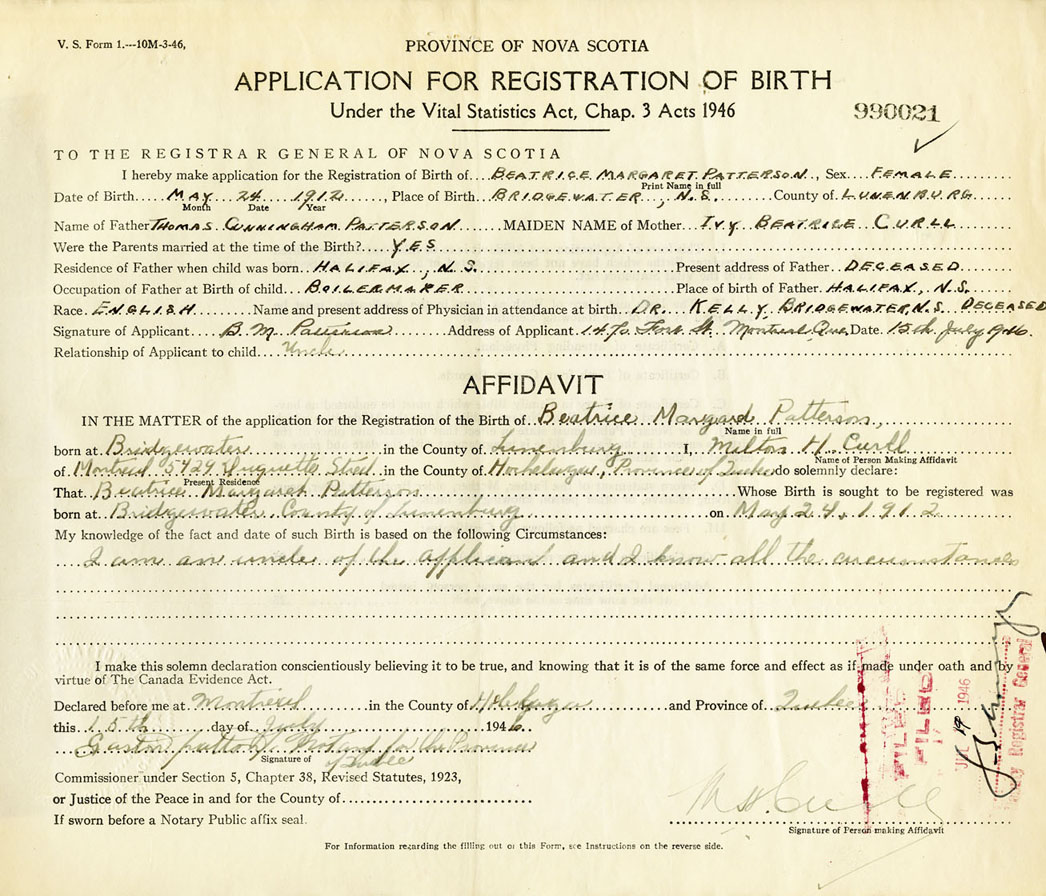 V. S. Form 1.---10M-3-46,
PROVINCE OF NOVA SCOTIA
APPLICATION FOR REGISTRATION OF BIRTH
Under the Vital Statistics Act, Chap. 3 Acts 1946
990021
TO THE REGISTRAR GENERAL OF NOVA SCOTIA
I hereby make application for the Registration of Birth of BEATRICE MARGARET PATTERSON, Sex FEMALE
Print Name in full
Date of Birth MAY 24 1912, Place of Birth BRIDGEWATER, N.S., County of LUNENBURG
Month Date Year
Name of Father THOMAS CUNNINGHAM PATTERSON MAIDEN NAME of Mother IVY BEATRICE CURLL
Were the Parents married at the time of the Birth? YES
Residence of Father when child was born HALIFAX, N.S. Present address of Father DECEASED
Occupation of Father at Birth of child BOILERMAKER Place of birth of Father HALIFAX, N.S.
Race ENGLISH Name and present address of Physician in attendance at birth DR. KELLY BRIDGEWATER N.S. DECEASED
Signature of Applicant B. M. Patterson Address of Applicant Fort St. Montreal Que Date 15th July 1946.
Relationship of Applicant to child Uncle
AFFIDAVIT
IN THE MATTER of the application for the Registration of the Birth of Beatrice Margaret Patterson
Name in full
born at Bridgewater in the County of Lunenburg I, Milton H. Curll
Name of Person Making Affidavit
of Montreal 5429 Street in the County of Hochelaga, Province of Quebec do solemnly declare:
Present Residence
That Beatrice Margaret Patterson Whose Birth is sought to be registered was
born at Bridgewater, County of Lunenburg on May 24, 1912
My knowledge of the fact and date of such Birth is based on the following Circumstances:
I am an uncle of the applicant and I know all the circumstances
I make this solemn declaration conscientiously believing it to be true, and knowing that it is of the same force and effect as if made under oath and by
virtue of The Canada Evidence Act.
Declared before me at Montreal in the County of Hochelaga and Province of Quebec
this 15th day of July 1946.
Notary for the Province
of Quebec
Signature of
Commissioner under Section 5, Chapter 38, Revised Statutes, 1923,
or Justice of the Peace in and for the County of
If sworn before a Notary Public affix seal.
M. H. Curll
Signature of Person making Affidavit
For Information regarding the filling out of this Form, see Instructions on the reverse side.
FILED
JUL 19 1946
Deputy Registrar General